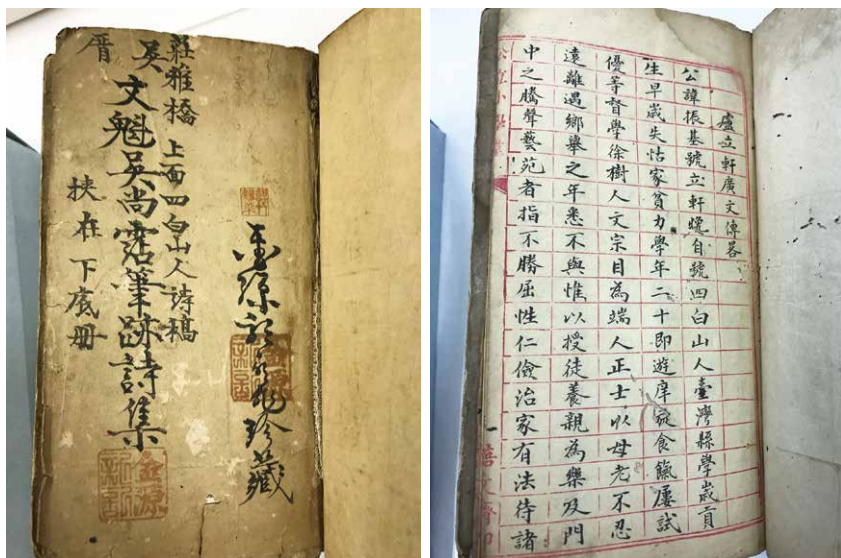 珍藏
莊雅橋 上面四白山人詩槁
吳 文魁吳尚霑筆跡詩集
挾在下底册
盧立軒廣文傳畧
公諱振基號立軒晚自號四白山人臺灣縣學歲貢
生早歲失怙家貧力學年二十即遊庠旋食餼屢試
優等督學徐樹人文宗目為端人正士以母老不忍
遠離遇鄉舉之年悉不與惟以授徒養親為樂及門
中之騰聲藝苑者指不勝屈性仁儉治家有法待諸